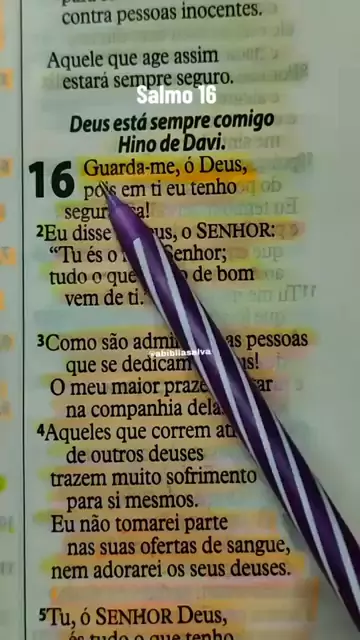 contra pessoas inocentes.
Aquele que age assim
estará sempre seguro.
Salmo 16
Deus está sempre comigo
Hino de Davi.
16 Guarda-me, ó Deus,
pois em ti eu tenho
2Eu disse o SENHOR:
“Tu és o Senhor;
tudo o que de bom
vem de ti.
3Como são as pessoas
que se dedicam
@abibliasalva
O meu maior
na companhia
4Aqueles que correm
de outros deuses
trazem muito sofrimento
para si mesmos.
Eu não tomarei parte
nas suas ofertas de sangue,
nem adorarei os seus deuses.
5Tu, ó SENHOR Deus,
és tudo o que tenho